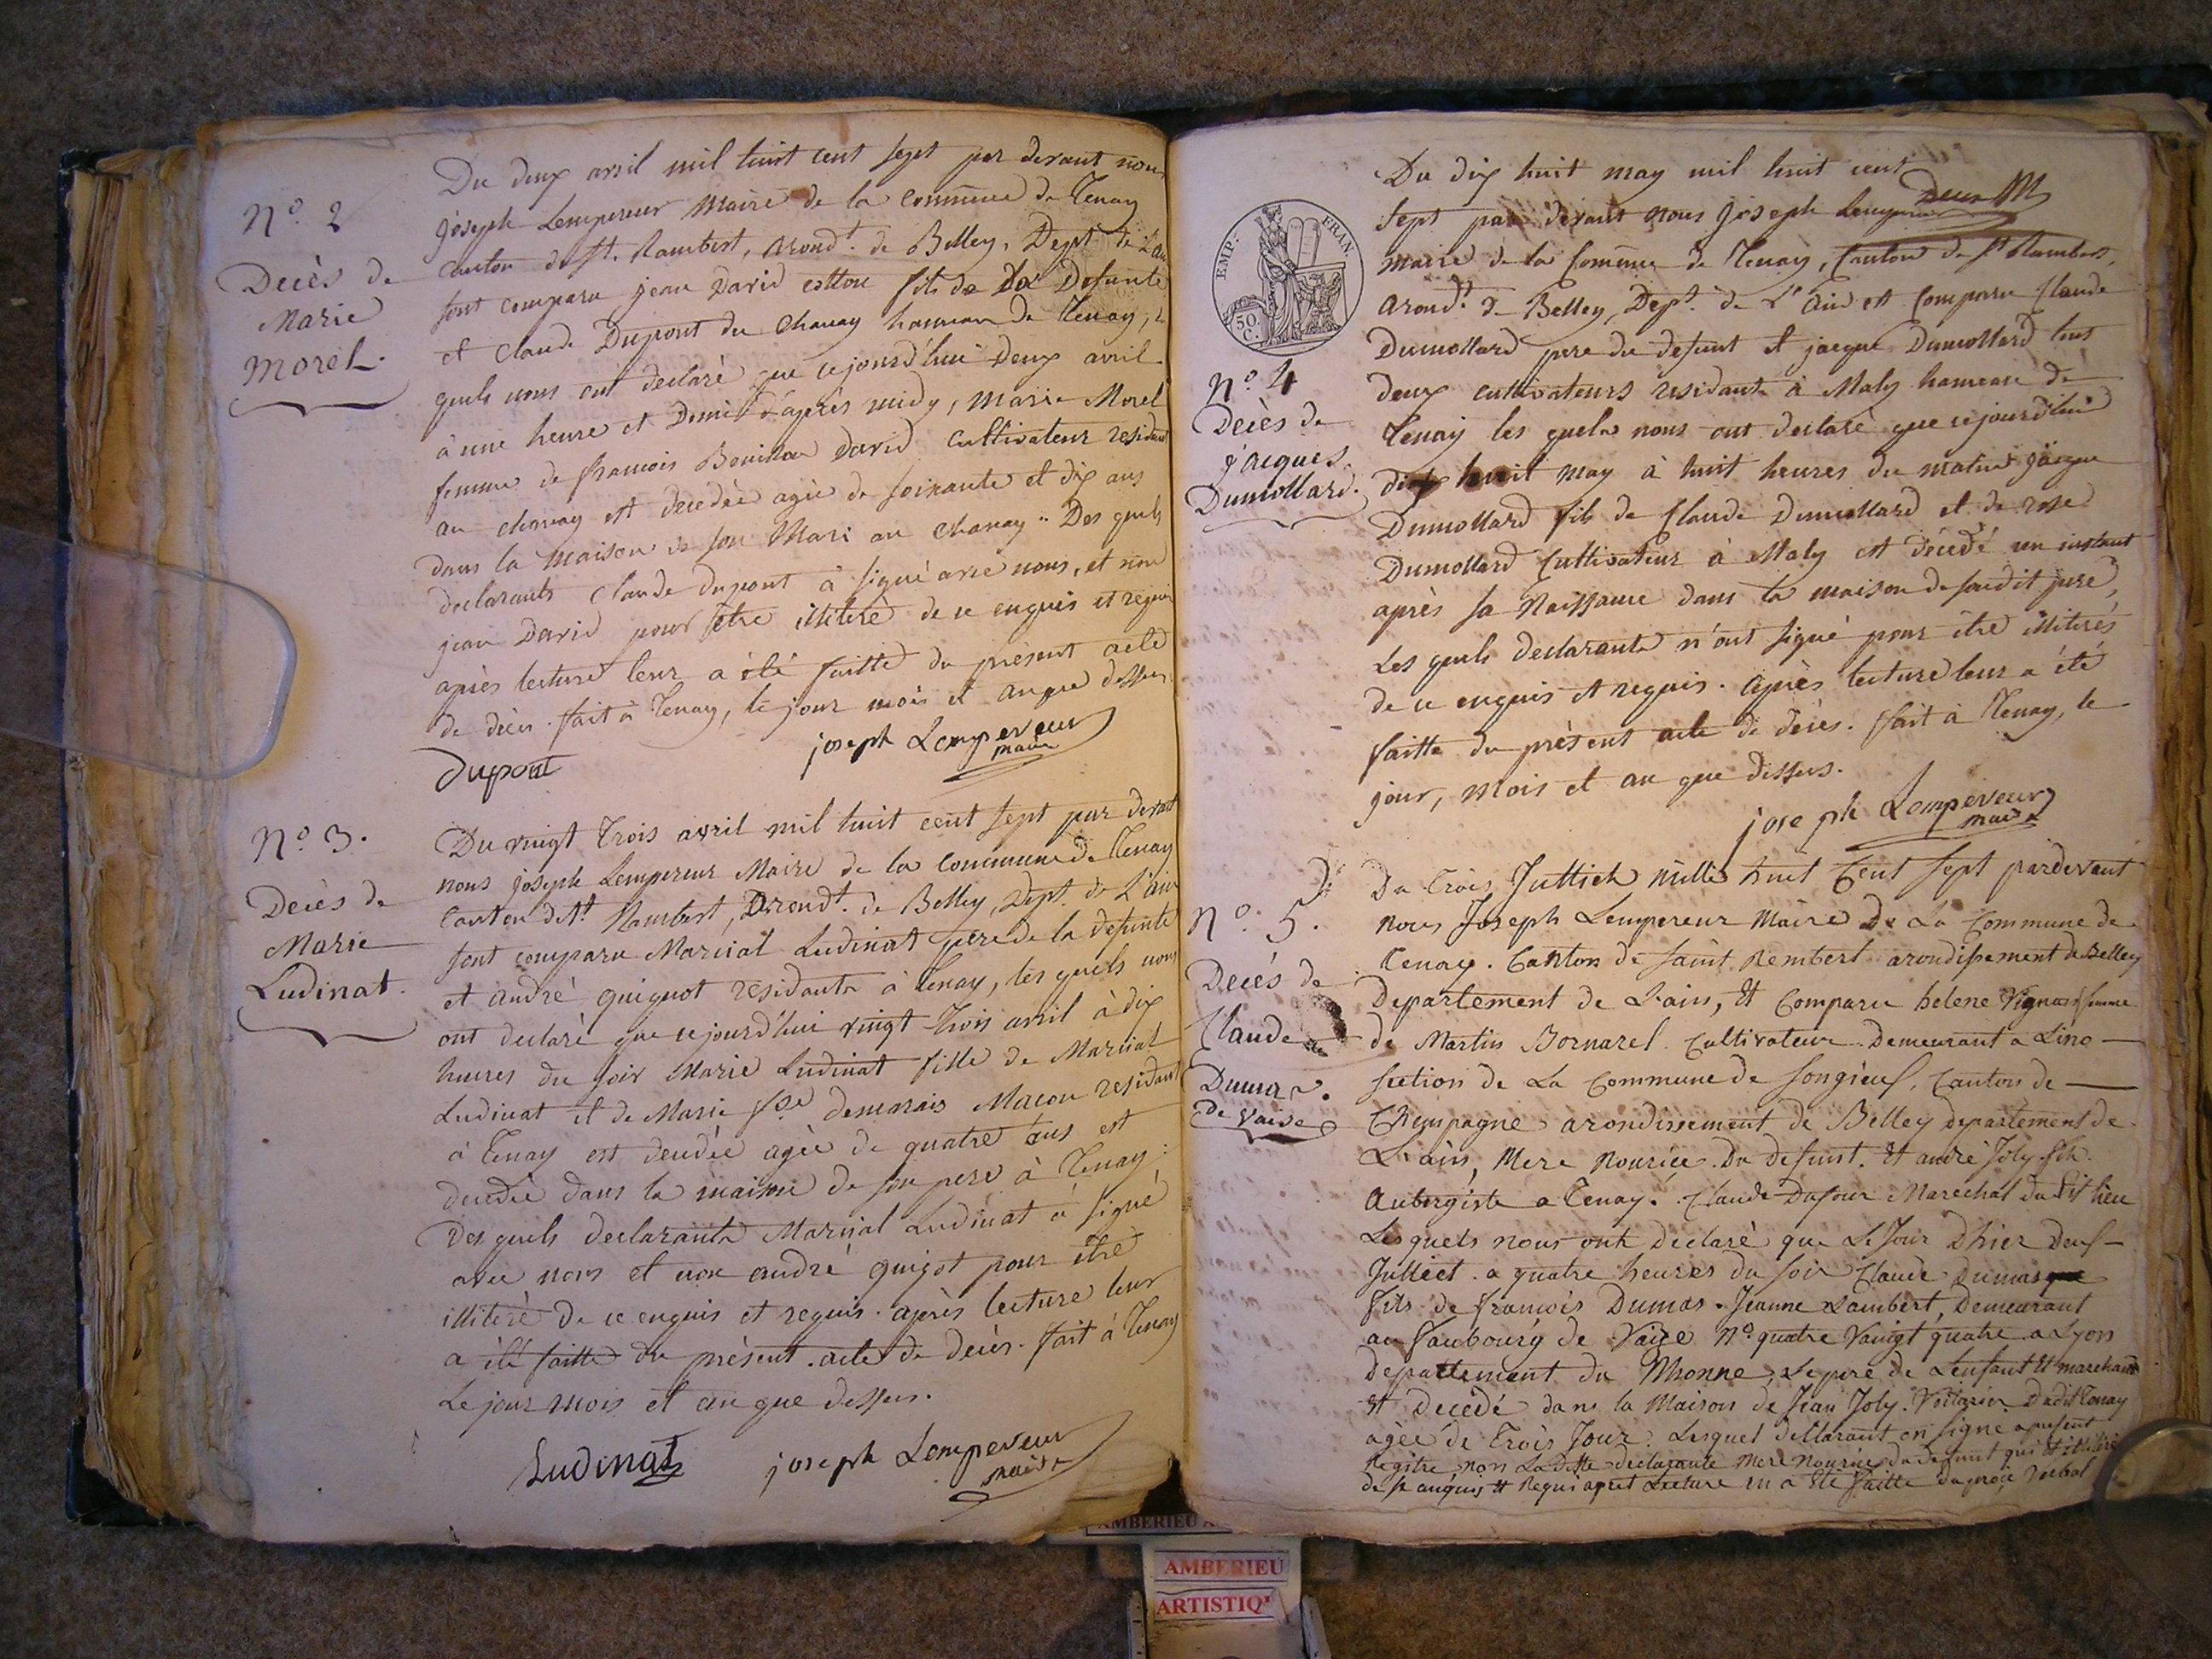 N.o 2
Decès de
Marie
Morel.
Du deux avril mil huit cent sept par devant nous
joseph Lempereur Maire de la commune de Tenay
canton de St. Rambert, arond.t de Belley, Dept. de L'ain
sont comparu jean David fils de La Defunte
et Claude Dupont du Chanay hameau de Tenay, les
quels nous ont declaré que cejourd'hui Deux avril
à une heure et Demi d'après midy, Marie Morel
femme de francois David Cultivateur residant
au chanay est decedée agée de soixante et dix ans
dans la maison de son Mari au Chanay. Des quels
declarants Claude dupont à signé avec nous, et non
jean David pour être illiteré de ce enquis et requis
après lecture leur a été faitte du présent acte
de décès. fait à Tenay, le jour mois et an que dessus
Dupont
joseph Lempereur
maire
N.o 3.
Decès de
Marie
Ludinat.
Du vingt trois avril mil huit cent sept par devant
nous joseph Lempereur Maire de la commune de Tenay
Canton de St. Rambert, Arond.t de Belley, Dept. de L'ain
sont comparu Marcial Ludinat pere de la defunte
et andré guiguot residants à Tenay, les quels nous
ont declaré que cejourd'hui vingt trois avril à dix
heures du soir Marie Ludinat fille de Marcial
Ludinat et de Marie demarais Macon residant
à Tenay est decedée agée de quatre ans est
decedée dans la maison de son pere à Tenay.
Des quels declarants Marcial Ludinat à signé
avec nous et non andré guigot pour être
illiteré de ce enquis et requis. après lecture leur
a été faitte du présent acte de décès. fait à Tenay
Le jour mois et an que dessus.
Ludinat
joseph Lempereur
maire
EMP. FRAN.
50. C.
N.o 4
Decès de
jacques
Dumollard.
Du dix huit may mil huit cent
sept par devant nous joseph Lempereur
maire de la Commune de Tenay, Canton de St Rambert,
arond.t de Belley, Dept. de L'Ain est comparu Claude
Dumollard pere du defunt et jacque Dumollard tous
deux cultivateurs residants à Maly hameau de
Tenay les quels nous ont declaré que cejourd'hui
dix huit may à huit heures du matin jacque
Dumollard fils de Claude Dumollard et de rose
Dumollard Cultivateur à Maly est décédé un instant
après sa Naissance dans la maison de sondit pere,
Les quels declarants n'ont signé pour être illiterés
de ce enquis et requis. Après lecture leur a été
faitte du présent acte de décès. fait à Tenay, le
jour, mois et an que dessus.
joseph Lempereur
maire
N.o 5.
Decés de
Claude
Dumas.
de Vaise
Du trois Julliet mille huit Cent sept pardevant
nous Joseph Lempereur Maire De La Commune de
Tenay. Canton de saint Rembert arondissement de Belley
departement de L'ain, Et Comparu helene femme
de Martin Bornarel Cultivateur Demeurant a Lino
section de La Commune de Songieux, Canton de
Chempagne arondissement de Belley departement de
L'ain, Mere Nourice Du defunt. Et andré Joly fils
Aubergiste a Tenay. Claude Dufour Marechal du dit lieu
Lesquels nous onts Declaré que Le Jour Dhier Deux
Julliet a quatre heures du soir Claude Dumas
fils de francois Dumas Jeanne Lambert, Demeurant
au faubourg de Vaize N.o quatre vaingt quatre a Lyon
departement du Rhonne, Le pere de Lenfant Et marchand
Et Decedé dans la Maison de Jean Joly Voiturier Dudit Tenay
agée de trois Jour. Lesquel dellarant on signé a present
Registre non La ditte declarante Mere Nourice du defunt qui Et illiteré
de se anquis Et Requi apret Lecture en a Eté faitte du procé verbal
AMBERIEU
AMBERIEU
ARTISTIQ